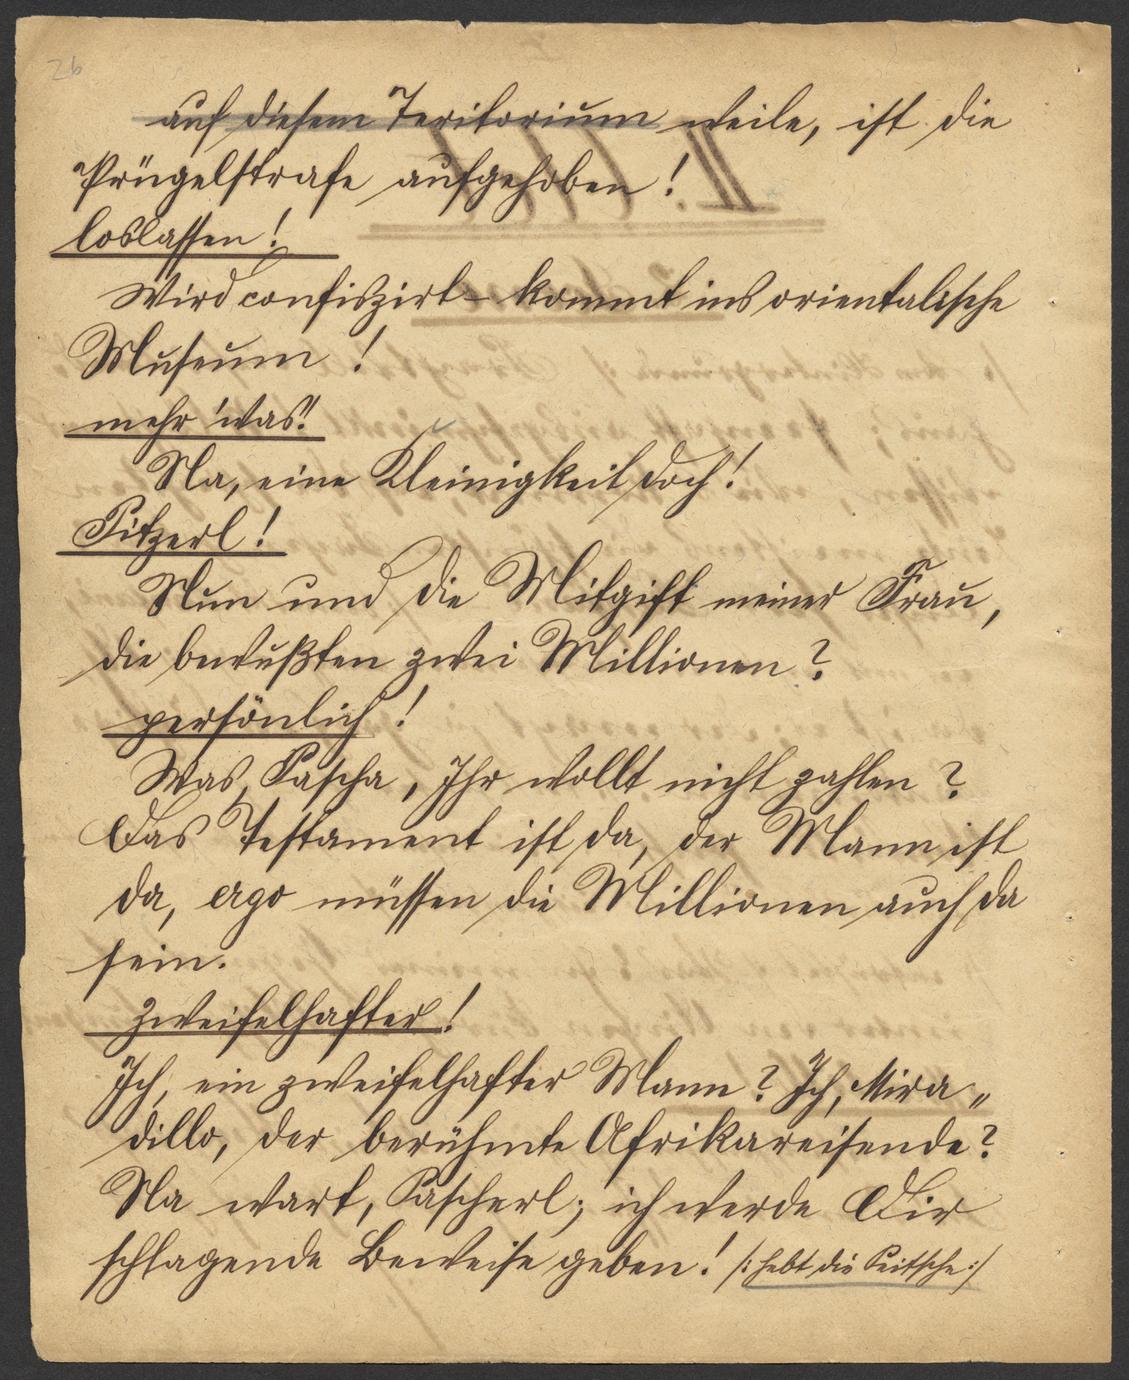 26
auf diesem Teritorium weile, ist die
Prügelstrafe aufgehoben!
loslassen!
Wird confiszirt – kommt ins orientalische
Museum!
mehr 'was!
Na, eine Kleinigkeit doch!
Pitzerl!
Nun und die Mitgift meiner Frau,
die bewußten zwei Millionen?
persönlich!
Was, Pascha, Ihr wollt nicht zahlen?
Das Testament ist da, der Mann ist
da, ergo müssen die Millionen auch da
sein.
zweifelhafter!
Ich, ein zweifelhafter Mann? Ich, Mira„
dillo, der berühmte Afrikareisende?
Na wart, Pascherl; ich werde Dir
schlagende Beweise geben! /: hebt die Peitsche :/